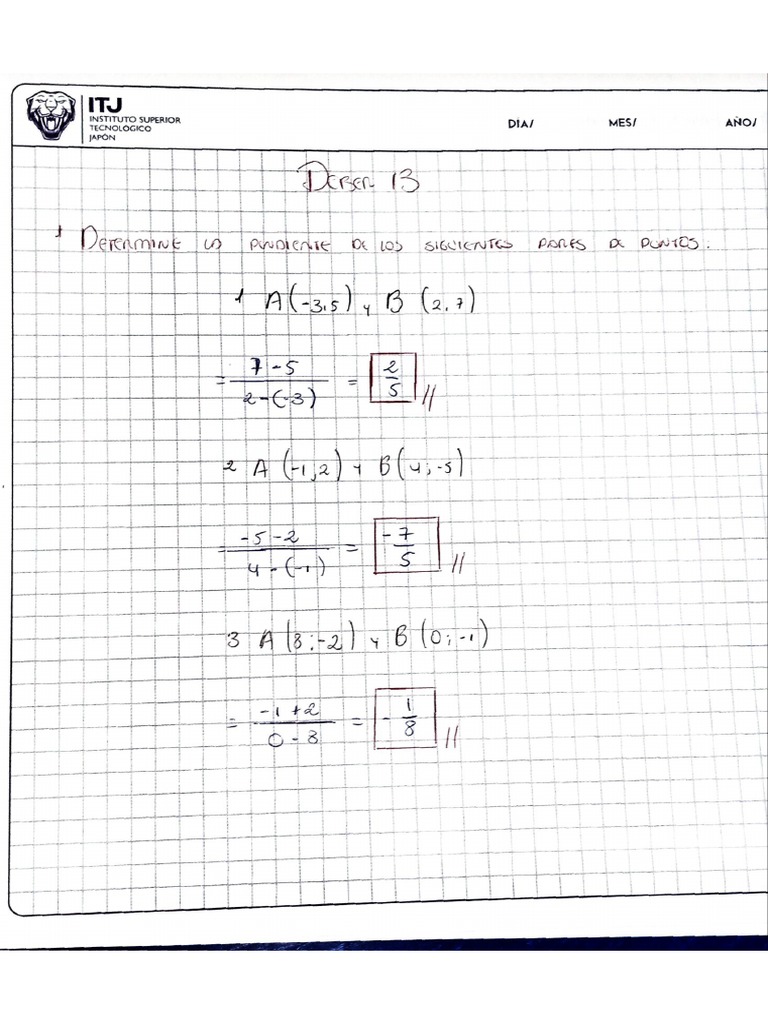 ITJ
INSTITUTO SUPERIOR
TECNOLOGICO
JAPÓN
DIA/ MES/ AÑO/
DEBER 13
1 DETERMINE LA PENDIENTE DE LOS SIGUIENTES PARES DE PUNTOS.
1 A(-3,5) y B (2,7)
= 7-5 / 2-(-3) = 2/5 //
2 A (-1,2) y B(4;-5)
-5-2 / 4-(-1) = -7/5 //
3 A (8;-2) y B(0;-1)
= -1+2 / 0-8 = -1/8 //